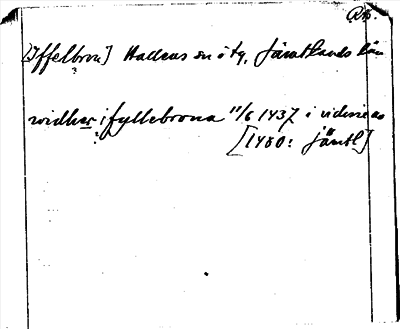 Rk.
[Yffelbron] Hallens sn o tg, Jämtlands län
widher ifyllebrona 11/6 1437 i vidim av
[1480: Jämtl]